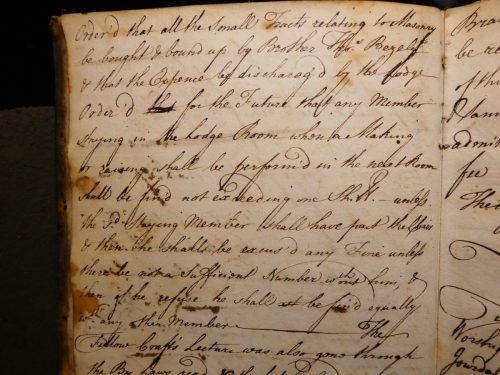 Order'd that all the Small Tracts relating to Masonry
be bought & bound up by Brother Thos.
& that the Expence be discharg'd by the Lodge
Order'd for the Future that any Member
staying in the Lodge Room when a Making
or raising shall be perform'd in the next Room
shall be fin'd not exceeding one Shill. - unless
the Sd. Staying Member shall have past the Chair
& then he shall be excus'd any Fine unless
there be not a Sufficient Number without him, &
then if he refuse he shall be fin'd equally
wth. any other Member The
Fellow Crafts Lecture was also gone through
the By Laws read &
be re
of thi
admit
fee
The
Worship
Jourda